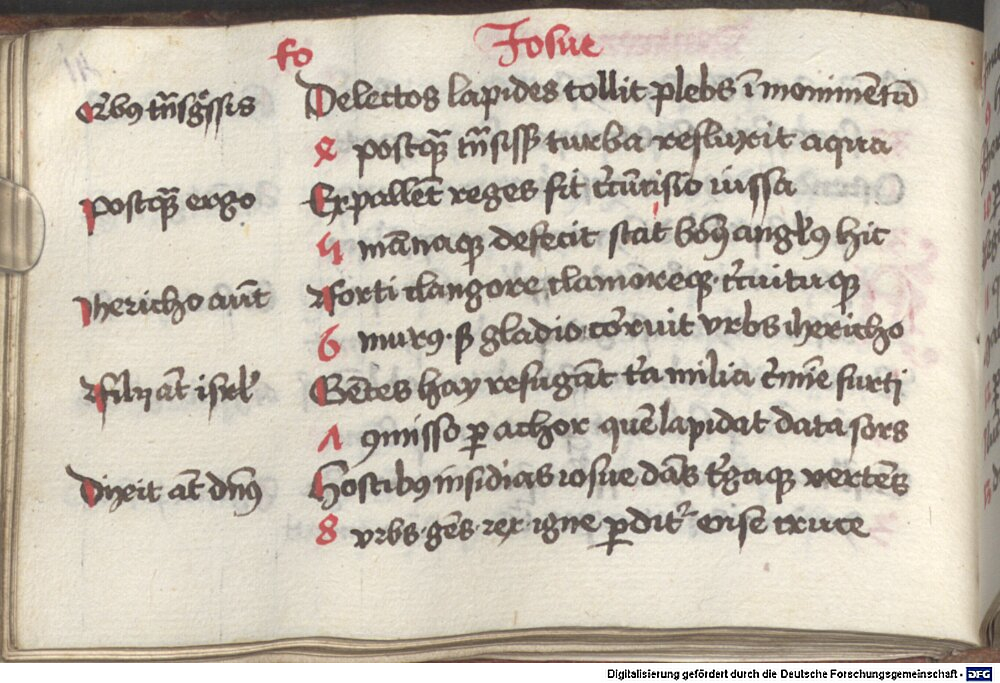 fo Josue
Qr̄bꝰ tn̄sg̃ssis Delectos lapides tollit plebs ī monimētū
4 postqꝫ̄ tn̄siss turba refluxit aqua
Postqꝫ̄ ergo Expallēt reges fit c̄cūcisio iussa
5 mānaqꝫ defecit stat angl̓ꝰ hit
Jhericho aūt Forti clangore clamoreqꝫ c̄cuituqꝫ
6 murꝰ gladio corruit vrbs ihericho
Filij at̄ isrl̓ Gētes hay refugāt t̄a milia c̄mīe furti
7 ꝯmisso ꝑ achor quē lapidat data sors
Dixit at̄ dn̄ꝰ Hostibꝰ insidias iosue dās t̓gaqꝫ vertēs
8 vrbs gēs rex igne ꝑdit᷑ ense cruce
Digitalisierung gefördert durch die Deutsche Forschungsgemeinschaft - DFG